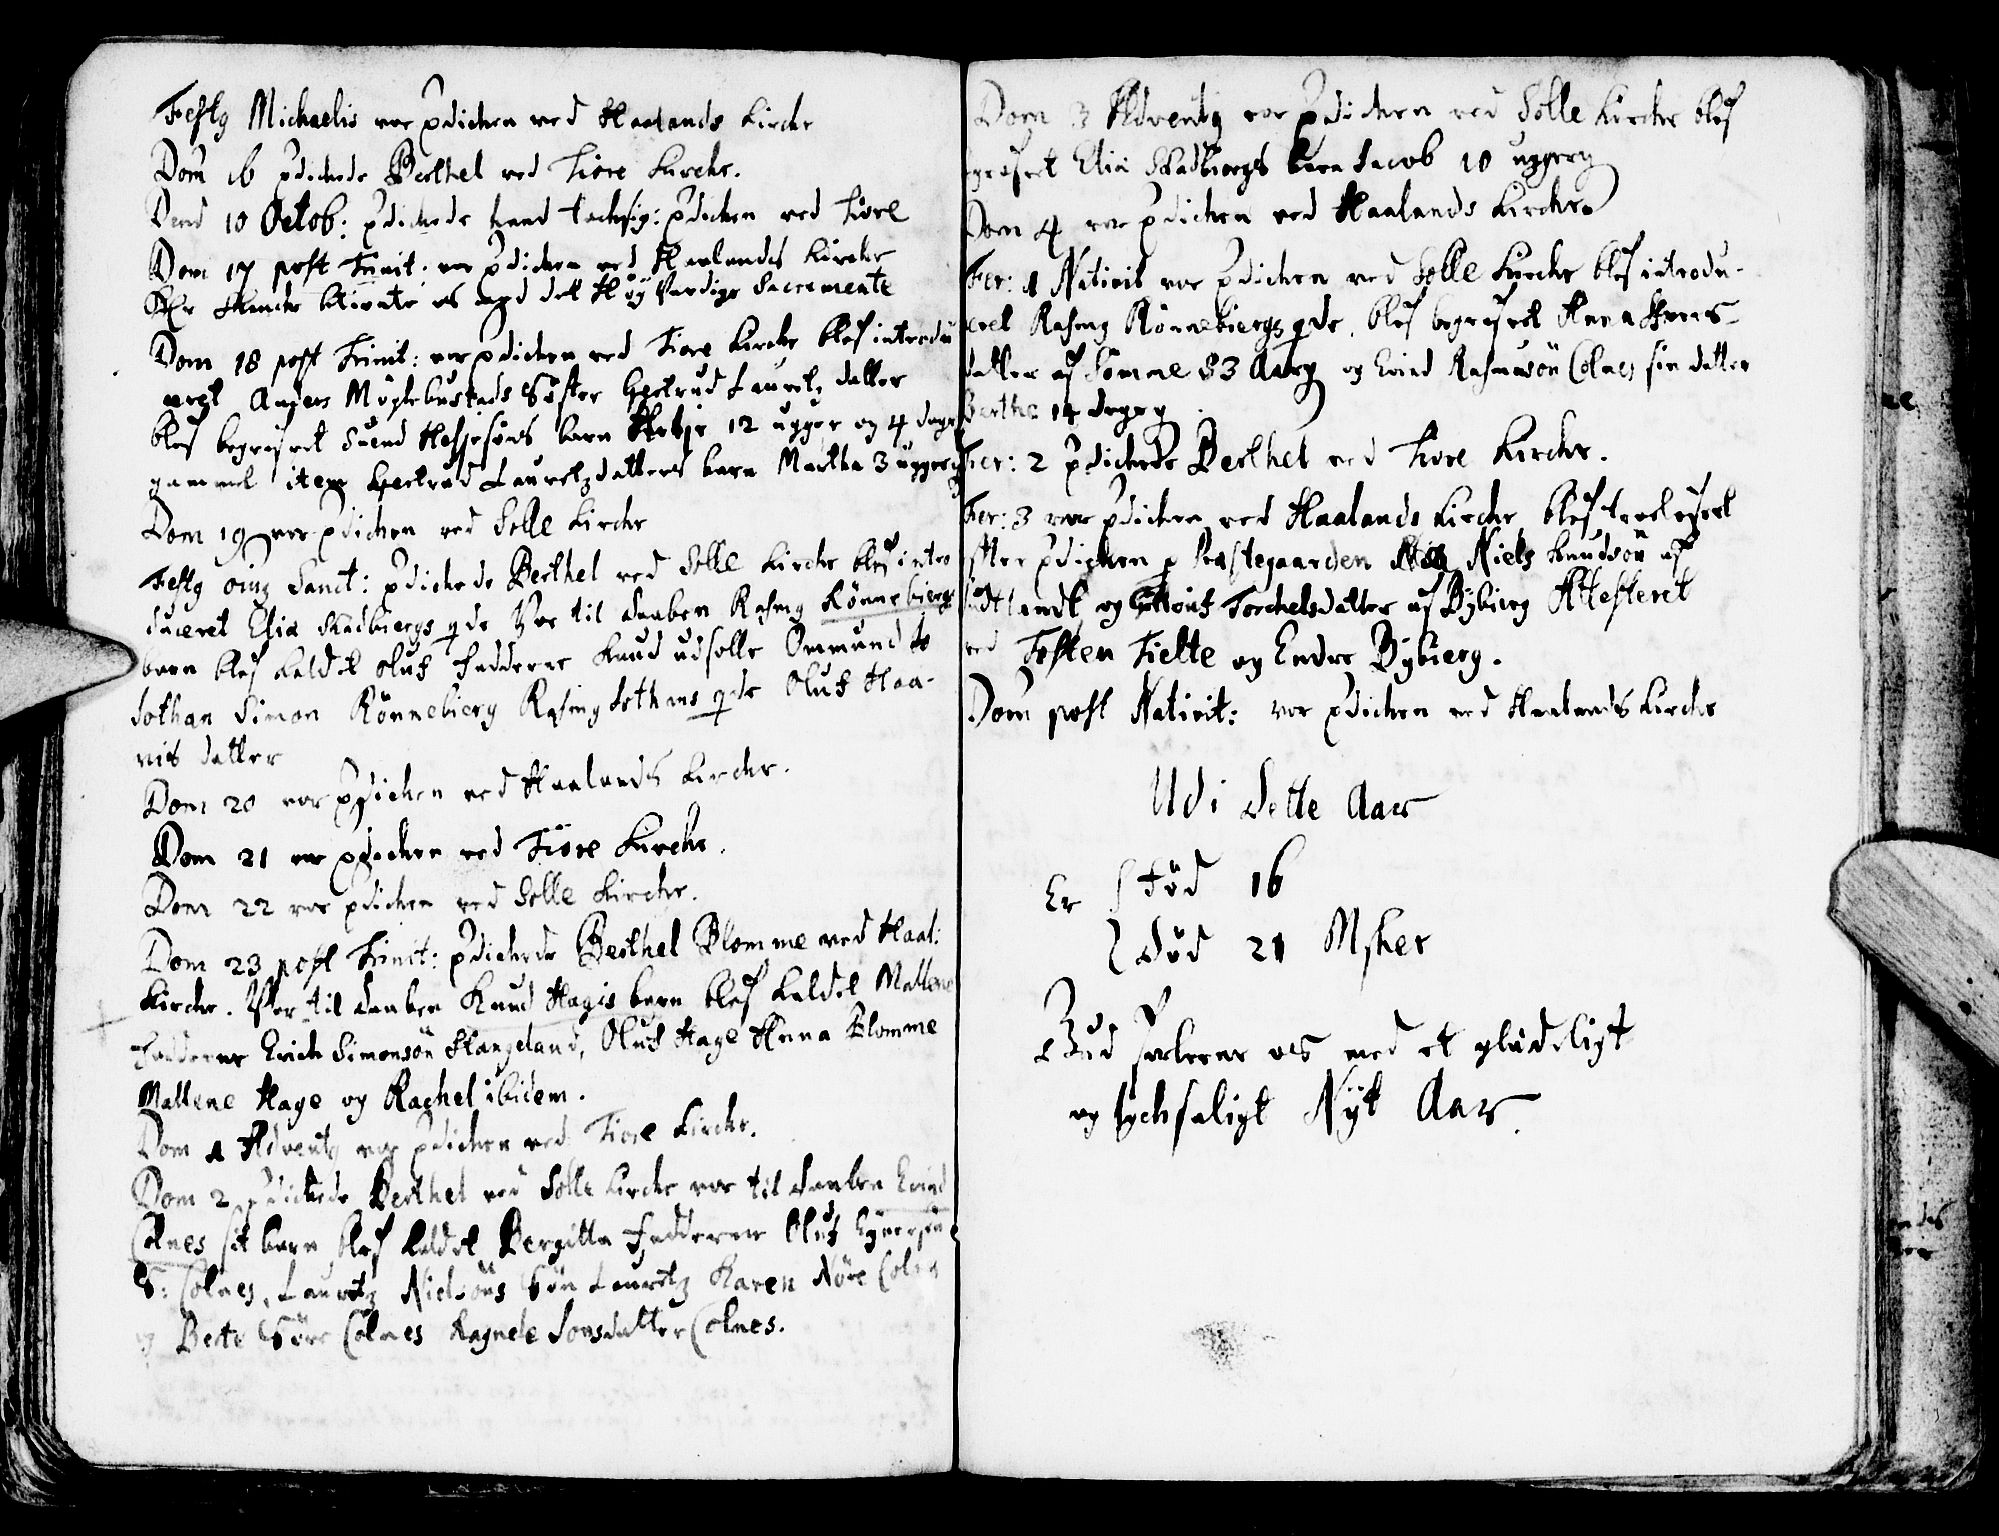 Festy Michaelis var pdichen ved Haalands Kirche
Dom 16 pdichede Berthel ved Tiore Kirche.
Dend 10 Octob: pdichede hand tachsig: pdichen ved Tiore
Dom 17 post Trinit: var pdichen ved Haalandes Kirche
os med det Høy Værdige Sacramente
Dom 18 post Trinit: var pdichen ved Tiore Kirche blef introdu
ceret Anders Møglebustads Søster Giertrud Lauretz datter
blef begrafvet Suend Helgesøns barn Helje 12 ugger og 4 dage
gammel item Giertrud Lauretzdatters barn Martha 3 uggery
Dom 19 var pdichen ved Solle Kirche
Festy oiu Sanct: pdichede Berthel ved Solle Kirche blef intro
duceret Elia Skadbiergs qde Var til daaben Rasmy Rønnebiergs
barn blef kaldet Oluf Fadderne Knud udsolle Ommund
Sothan Simon Rønnebierg Rasmy Sothans qde Oluf Haa-
vis datter
Dom 20 var pdichen ved Haalands Kirche.
Dom 21 var pdichen ved Tiore Kirche.
Dom 22 var pdichen ved Solle Kirche.
Dom 23 post Trinit: pdichede Berthel Blomme ved Haal:
Kirche. Var til daaben Knud Hagis barn blef kaldet Mallene
Fadderne Erich Simonsøn Stangeland, Oluf Hage Anna Blomme
Mallene Hage og Rachel ibidem.
Dom 1 Adventy var pdichen ved Tiore Kirche.
Dom 2 pdichede Berthel ved Solle Kirche var til daaben Evind
Colnes sit barn blef kaldet Bergitta Fadderne Oluf
S: Colnes, Lauretz Nielsøns Søn Lauretz Karen Nøre Colnes
og Berte Søre Colnes Ragnele Jonsdatter Colnes.
Dom 3 Adventy var pdichen ved Solle Kirche blef
grafvet Elia Skadbiergs barn Jacob 10 uggery
Dom 4 var pdichen ved Haalands Kirche
Fer: 1 Nativit var pdichen ved Solle Kirche blef introdu-
ceret Rasmy Rønnebiergs qde. blef begrafvet Anna
datter af Somme 83 Aary og Evind Rasmusøn Colnes sin datter
Berthe 14 dagey
Fer: 2 pdichede Berthel ved Tiore Kirche.
Fer: 3 var pdichen ved Haalands Kirche, blef
efter pdichen p Præstegaarden Niels Knudsøn af
og Torchelsdatter af Bybierg Attesteret
ved Testen Tielte og Endre Bybierg.
Dom post Nativit: var pdichen ved Haalands Kirche
Udi dette Aar
Er { Fød 16
{ død 21 Msker
Gud forleene os med et glædeligt
og lychsaligt Nÿt Aar.